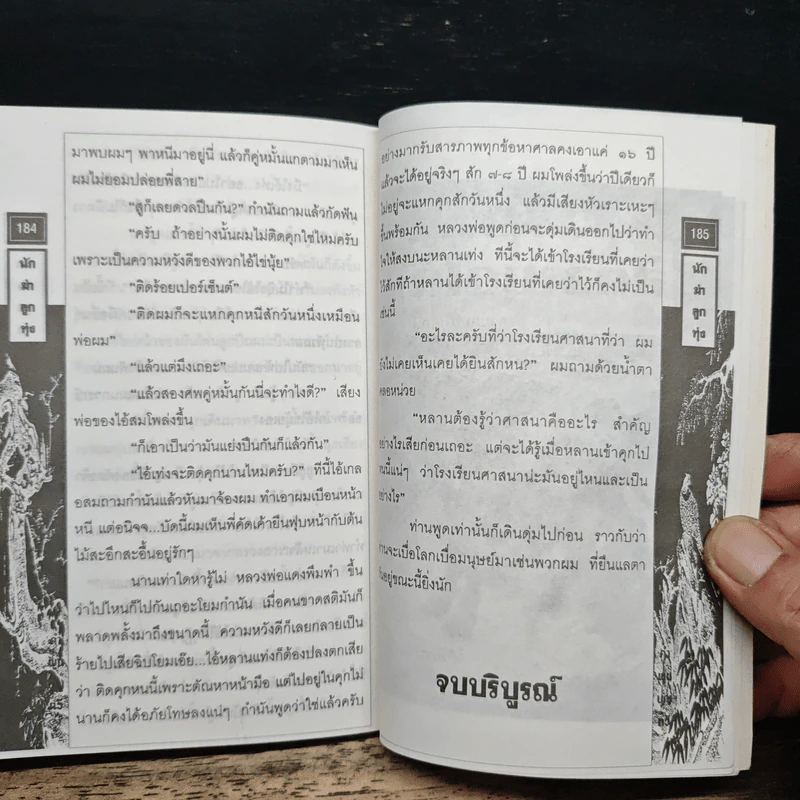 184
นัก
ฆ่า
ลูก
ทุ่ง
มาพบผมๆ พาหนีมาอยู่นี่ แล้วก็คู่หมั้นแกตามมาเห็น
ผมไม่ยอมปล่อยพี่สาย”
“สูก็เลยดวลปืนกัน?” กำนันถามแล้วกัดฟัน
“ครับ ถ้าอย่างนั้นผมไม่ติดคุกใช่ไหมครับ
เพราะเป็นความหวังดีของพวกไอ้ไข่นุ้ย”
“ติดร้อยเปอร์เซ็นต์”
“ติดผมก็จะแหกคุกหนีสักวันหนึ่งเหมือน
พ่อผม”
“แล้วแต่มึงเถอะ”
“แล้วสองศพคู่หมั้นกันนี่จะทำไงดี?” เสียง
พ่อของไอ้สมโพล่งขึ้น
“ก็เอาเป็นว่ามันแย่งปืนกันก็แล้วกัน”
“ไอ้เท่งจะติดคุกนานไหมครับ?” ทีนี้ไอ้เกล
อสมถามกำนันแล้วหันมาจ้องผม ทำเอาผมเบือนหน้า
หนี แต่อนิจจ...บัดนี้ผมเห็นพี่คัดเค้ายืนฟุบหน้ากับต้น
ไม้สะอึกสะอื้นอยู่รักๆ
นานเท่าใดหารู้ไม่ หลวงพ่อแดงพึมพำ ขึ้น
ว่าไปไหนก็ไปกันเถอะโยมกำนัน เมื่อคนขาดสติมันก็
พลาดพลั้งมาถึงขนาดนี้ ความหวังดีก็เลยกลายเป็น
ร้ายไปเสียฉิบโยมเอ๊ย...ไอ้หลานแท่งก็ต้องปลงตกเสีย
ว่า ติดคุกหนนี้เพราะตัณหาหน้ามือ แต่ไปอยู่ในคุกไม่
นานก็คงได้อภัยโทษลงแน่ๆ กำนันพูดว่าใช่แล้วครับ
อย่างมากรับสารภาพทุกข้อหาศาลคงเอาแค่ ๑๖ ปี
แล้วจะได้อยู่จริงๆ สัก ๗-๘ ปี ผมโพล่งขึ้นว่าปีเดียวก็
ไม่อยู่จะแหกคุกสักวันหนึ่ง แล้วมีเสียงหัวเราะเหะๆ
ขึ้นพร้อมกัน หลวงพ่อพูดก่อนจะดุ่มเดินออกไปว่าทำ
ใจให้สงบนะหลานเท่ง ทีนี้จะได้เข้าโรงเรียนที่เคยว่า
ไว้สักทีถ้าหลานได้เข้าโรงเรียนที่เคยว่าไว้ก็คงไม่เป็น
เช่นนี้
“อะไรล่ะครับที่ว่าโรงเรียนศาสนาที่ว่า ผม
ยังไม่เคยเห็นเคยได้ยินสักหน?” ผมถามด้วยน้ำตา
คลอหน่วย
“หลานต้องรู้ว่าศาสนาคืออะไร สำคัญ
อย่างไรเสียก่อนเถอะ แต่จะได้รู้เมื่อหลานเข้าคุกไป
หนนี้แน่ๆ ว่าโรงเรียนศาสนาน่ะมันอยู่ไหนและเป็น
อย่างไร”
ท่านพูดเท่านั้นก็เดินดุ่มไปก่อน ราวกับว่า
ท่านจะเบื่อโลกเบื่อมนุษย์มาเช่นพวกผม ที่ยืนแลตา
กันอยู่ขณะนี้ยิ่งนัก
จบบริบูรณ์
185
นัก
ฆ่า
ลูก
ทุ่ง